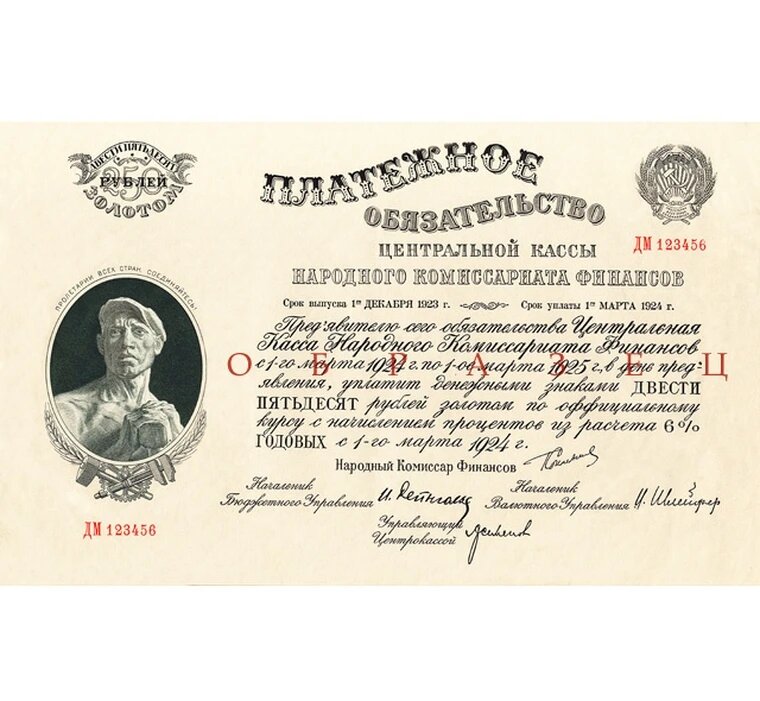 ДВЕСТИ ПЯТЬДЕСЯТ
250
РУБЛЕЙ
ЗОЛОТОМ
ПЛАТЕЖНОЕ
ОБЯЗАТЕЛЬСТВО
ЦЕНТРАЛЬНОЙ КАССЫ
НАРОДНОГО КОМИССАРИАТА ФИНАНСОВ
ДМ 123456
Срок выпуска 1го ДЕКАБРЯ 1923 г.
Срок уплаты 1го МАРТА 1924 г.
ПРОЛЕТАРИИ ВСЕХ СТРАН, СОЕДИНЯЙТЕСЬ!
Пред'явителю сего обязательства Центральная
Касса Народного Комиссариата Финансов
ОБРАЗЕЦ
с 1-го марта 1924 г. по 1-ое марта 1925 г., в день пред-
явления, уплатит денежными знаками ДВЕСТИ
ПЯТЬДЕСЯТ рублей золотом по оффициальному
курсу с начислением процентов из расчета 6%
ГОДОВЫХ с 1-го марта 1924 г.
Народный Комиссар Финансов
Началеник
Бюджетного Управления
Началеник
Валютного Управления
Управляющий
Центрокассой
ДМ 123456